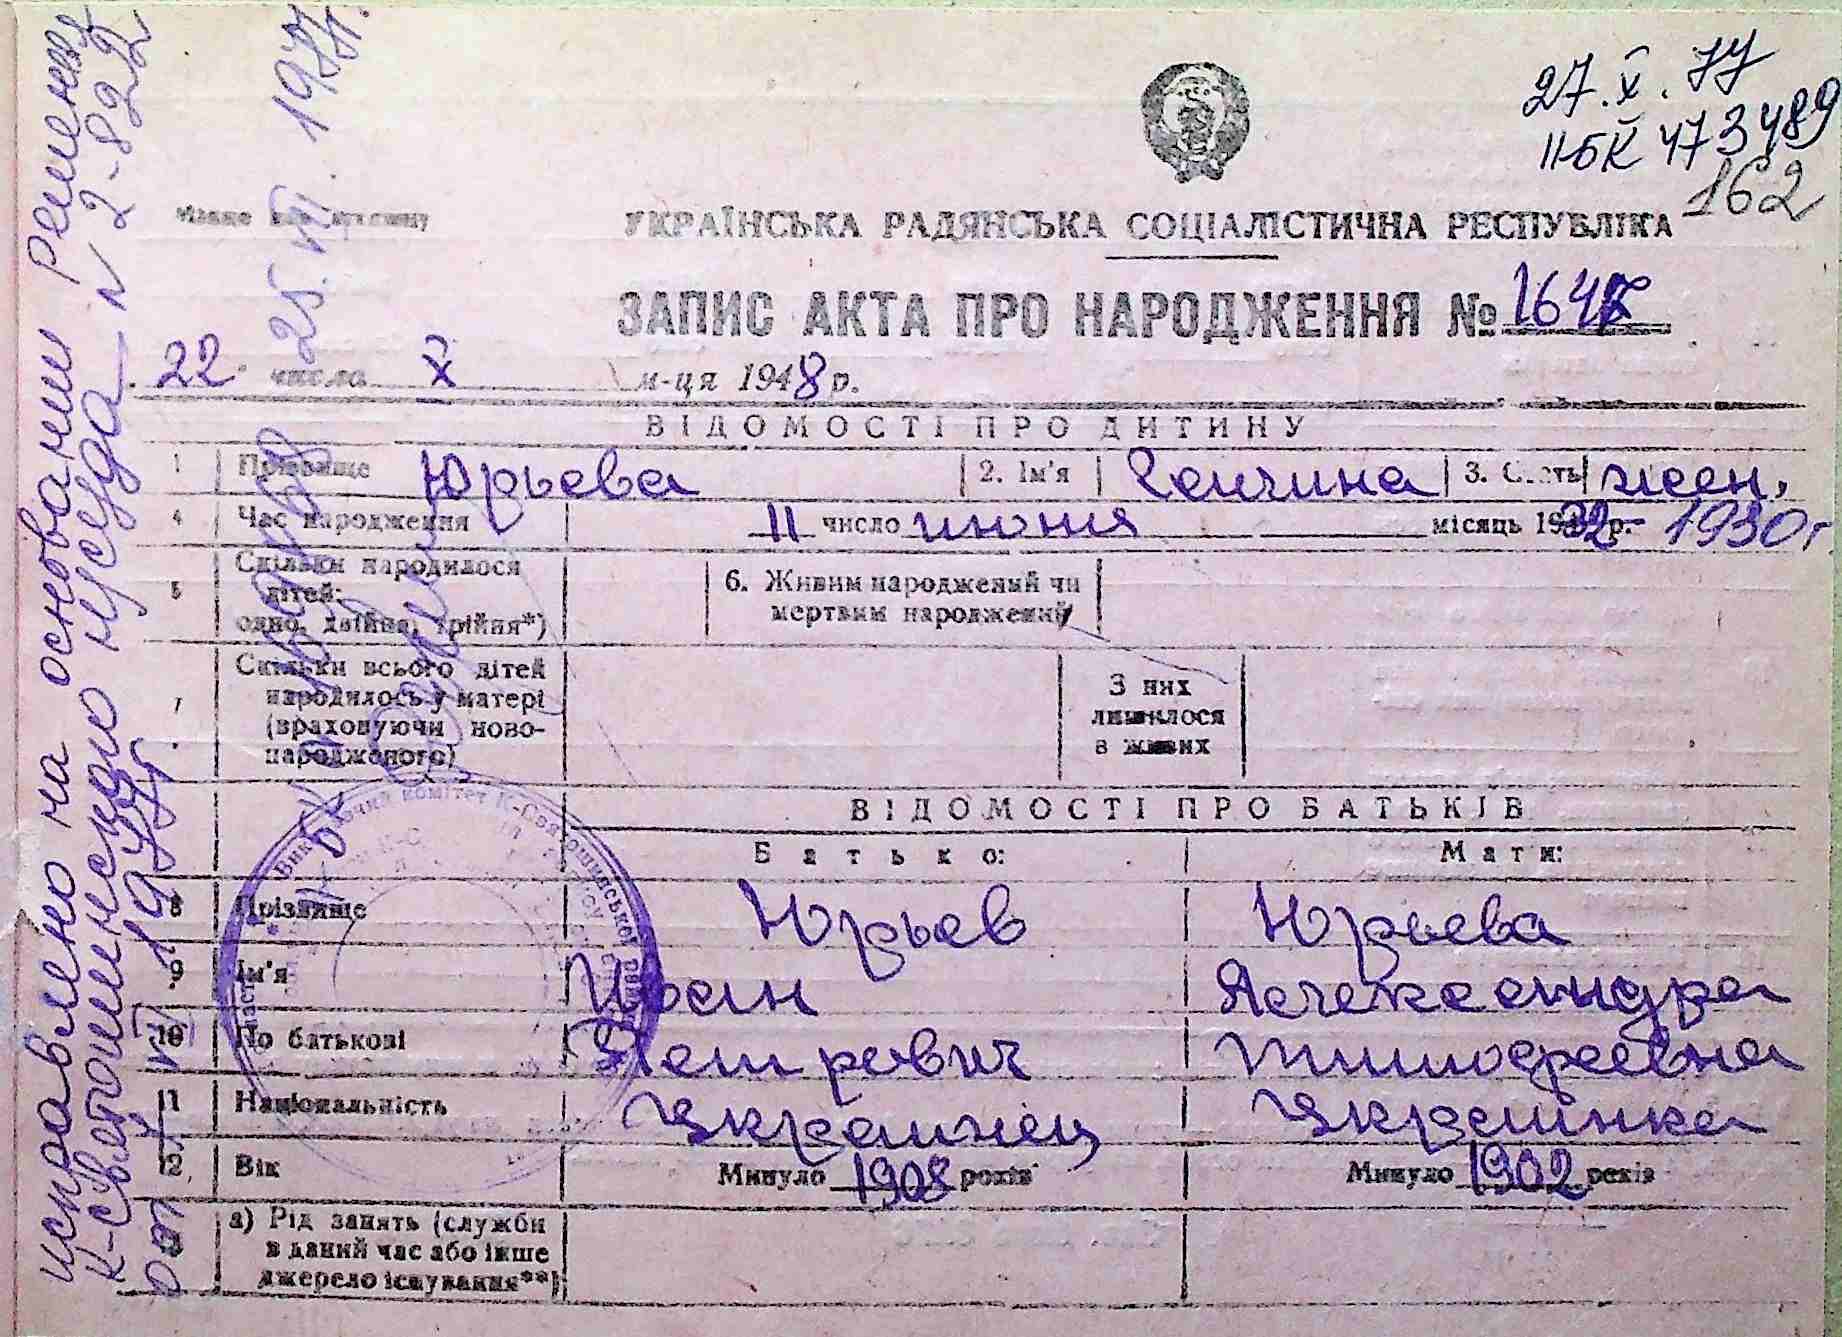 27.X.77
II-БК 473489
162
УКРАЇНСЬКА РАДЯНСЬКА СОЦІАЛІСТИЧНА РЕСПУБЛІКА
ЗАПИС АКТА ПРО НАРОДЖЕННЯ № 1647
22 числа X м-ця 1948 р.
ВІДОМОСТІ ПРО ДИТИНУ
1 Прізвище Юрьева 2. Ім'я Галина 3. Стать жен.
4 Час народження 11 число июня місяць 1932 р. 1930 г
5 Скільки народилося дітей: одно, двійня, трійня*) 6. Живим народжений чи мертвим народжений
7 Скільки всього дітей народилось у матері (враховуючи новонародженого) З них лишилося в живих
ВІДОМОСТІ ПРО БАТЬКІВ
Батько: Мати:
8 Прізвище Юрьев Юрьева
9 Ім'я Иван Александра
10 По батькові Петрович Тимофеевна
11 Національність Украинец Украинка
12 Вік Минуло 1908 років Минуло 1902 років
а) Рід занять (служби в даний час або інше джерело існування**)
исправлено на основании Решения
К-Святошинского Нсуда N 2-822
от 1977
25.VII.1977г.